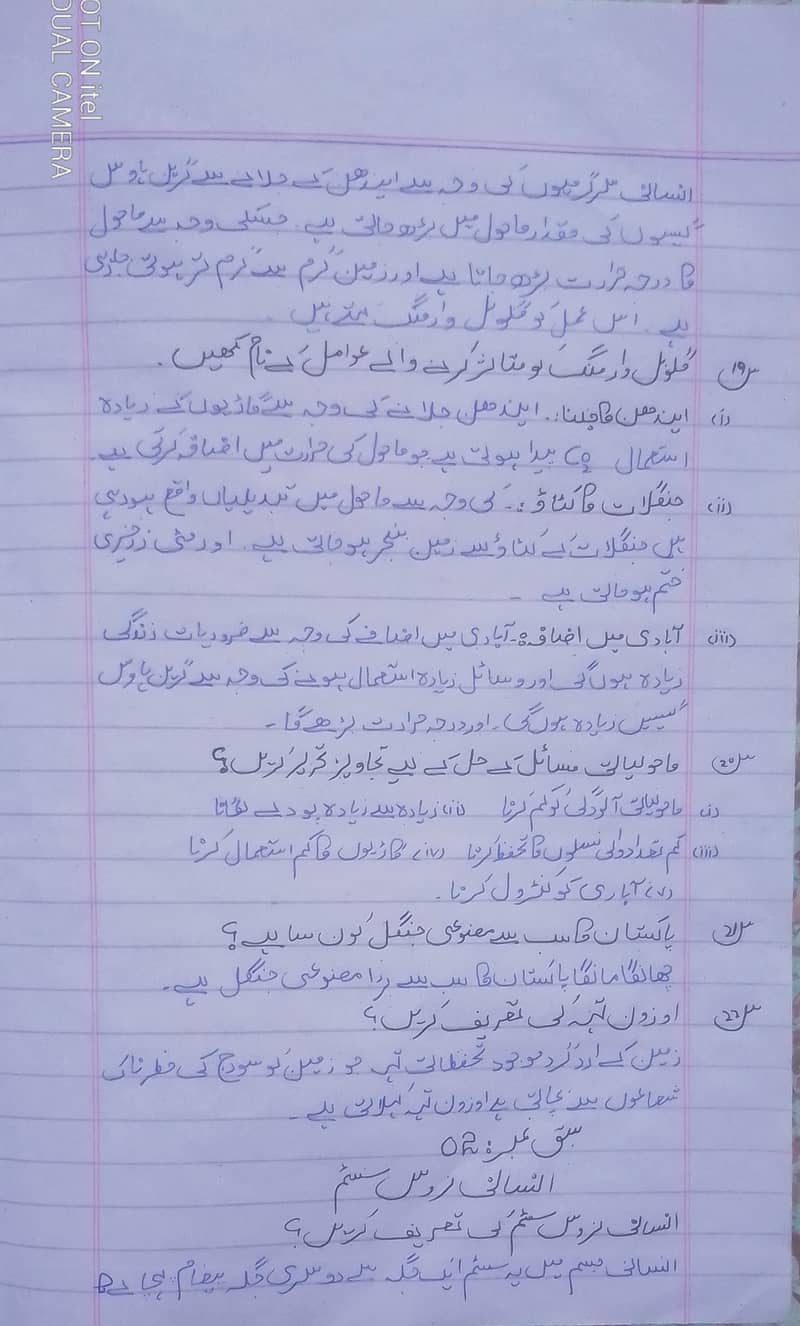 انسانی سرگرمیوں کی وجہ سے ایندھن کے جلانے سے گرین ہاوس
گیسوں کی مقدار ماحول میں بڑھ جاتی ہے۔ جسکی وجہ سے ماحول
کا درجہ حرارت بڑھ جاتا ہے اور زمین "گرم سے گرم تر" ہوتی جارہی
ہے۔ اس عمل کو گلوبل وارمنگ کہتے ہیں۔
س19 گلوبل وارمنگ کو متاثر کرنے والے عوامل کے نام لکھیں۔
(i) ایندھن کا جلنا:۔ ایندھن جلانے کی وجہ سے گاڑیوں کے زیادہ
استعمال CO2 پیدا ہوتی ہے جو ماحول کی حرارت میں اضافہ کرتی ہے۔
(ii) جنگلات کا کٹاؤ:۔ کی وجہ سے ماحول میں تبدیلیاں واقع ہو رہی
ہیں جنگلات کے کٹاؤ سے زمین بنجر ہو جاتی ہے۔ اور مٹی زرخیزی
ختم ہو جاتی ہے۔
(iii) آبادی میں اضافہ:۔ آبادی میں اضافے کی وجہ سے ضروریات زندگی
زیادہ ہوں گی اور وسائل زیادہ استعمال ہونے کی وجہ سے گرین ہاوس
گیسیں زیادہ ہوں گی۔ اور درجہ حرارت بڑھے گا۔
س20 ماحولیاتی مسائل کے حل کے لیے تجاویز تحریر کریں؟
(i) ماحولیاتی آلودگی کو کم کرنا (ii) زیادہ سے زیادہ پودے لگانا
(iii) کم تعداد والی نسلوں کا تحفظ کرنا (iv) گاڑیوں کا کم استعمال کرنا
(v) آبادی کو کنٹرول کرنا۔
س21 پاکستان کا سب سے مصنوعی جنگل کون سا ہے؟
چھانگا مانگا پاکستان کا سب سے بڑا مصنوعی جنگل ہے۔
س22 اوزون تہہ کی تعریف کریں؟
زمین کے اردگرد موجود تحفظاتی تہہ جو زمین کو سورج کی خطرناک
شعاعوں سے بچاتی ہے اوزون تہہ کہلاتی ہے۔
سبق نمبر: 02
انسانی نروس سسٹم
انسانی نروس سسٹم کی تعریف کریں؟
انسانی جسم میں یہ سسٹم ایک جگہ سے دوسری جگہ پیغام
OT ON itel
DUAL CAMERA